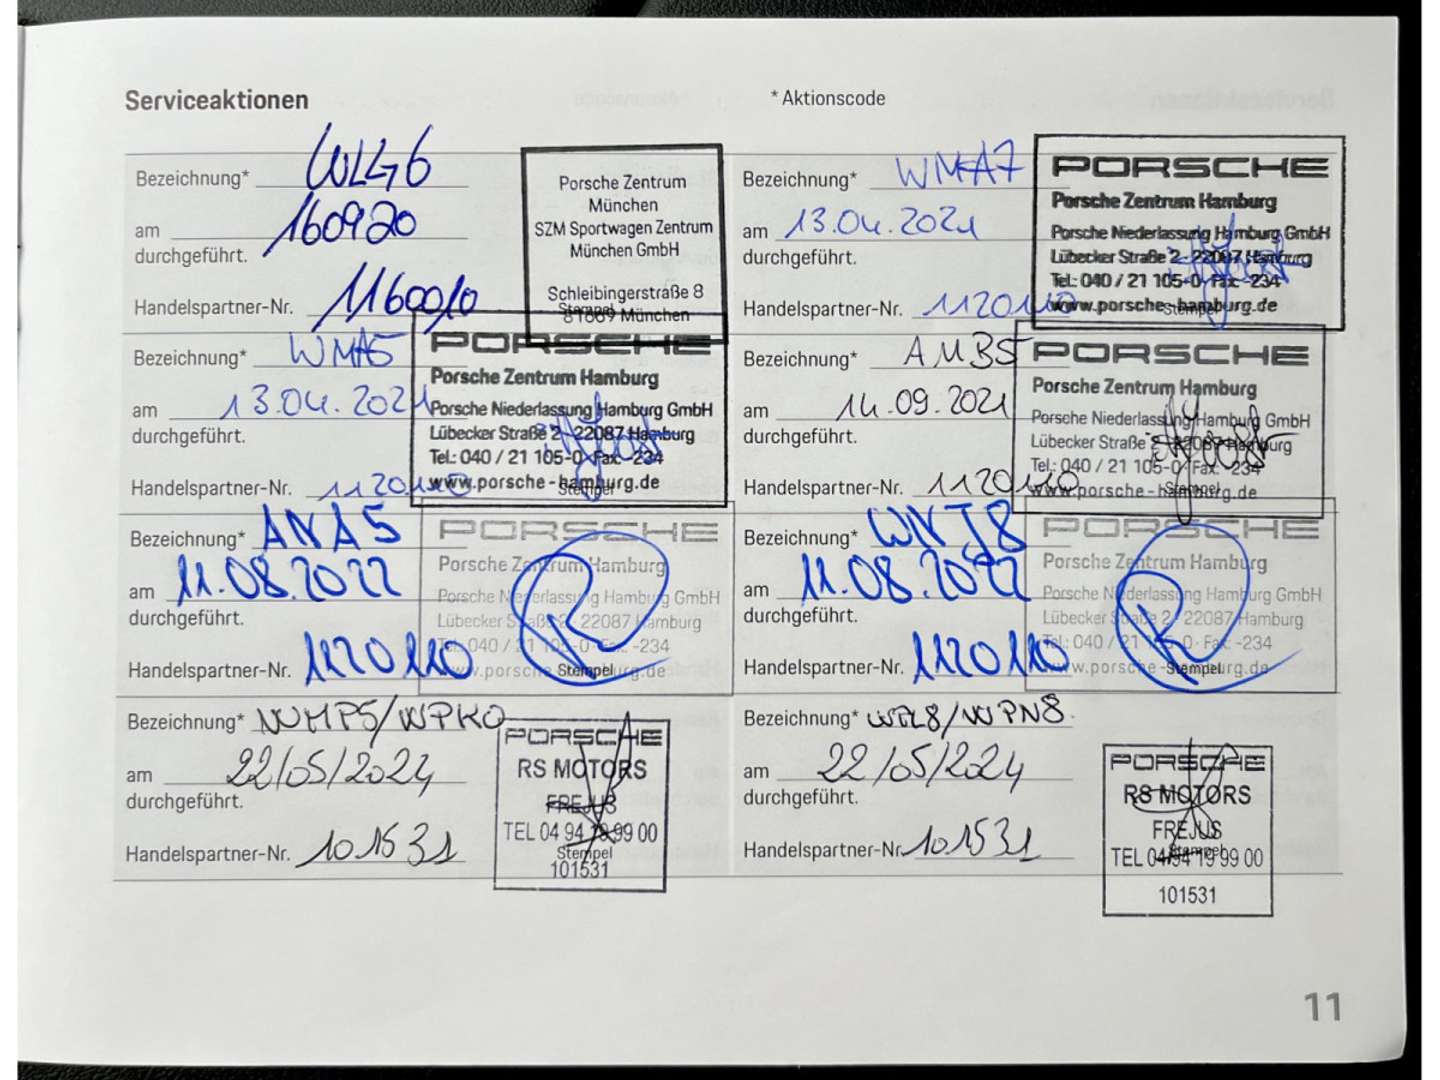 Serviceaktionen
* Aktionscode
Bezeichnung* WLG6
am 160920
durchgeführt.
Handelspartner-Nr. 1160010
Porsche Zentrum
München
SZM Sportwagen Zentrum
München GmbH
Schleibingerstraße 8
Stempel
81669 München
Bezeichnung* WMA7
am 13.04.2021
durchgeführt.
Handelspartner-Nr. 1120110
PORSCHE
Porsche Zentrum Hamburg
Porsche Niederlassung Hamburg GmbH
Lübecker Straße 2 · 22087 Hamburg
Tel.: 040 / 21 105-0 · Fax: -234
www.porsche-hamburg.de
Stempel
Bezeichnung* WMA5
am 13.04.2021
durchgeführt.
Handelspartner-Nr. 1120110
PORSCHE
Porsche Zentrum Hamburg
Porsche Niederlassung Hamburg GmbH
Lübecker Straße 2 · 22087 Hamburg
Tel.: 040 / 21 105-0 · Fax: -234
www.porsche-hamburg.de
Stempel
Bezeichnung* AMB5
am 14.09.2021
durchgeführt.
Handelspartner-Nr. 1120110
PORSCHE
Porsche Zentrum Hamburg
Porsche Niederlassung Hamburg GmbH
Lübecker Straße 2 · 22087 Hamburg
Tel.: 040 / 21 105-0 · Fax: -234
www.porsche-hamburg.de
Stempel
Bezeichnung* ANA5
am 11.08.2022
durchgeführt.
Handelspartner-Nr. 1120110
PORSCHE
Porsche Zentrum Hamburg
Porsche Niederlassung Hamburg GmbH
Lübecker Straße 2 · 22087 Hamburg
Tel.: 040 / 21 105-0 · Fax: -234
www.porsche-hamburg.de
Stempel
Bezeichnung*
am 11.08.2022
durchgeführt.
Handelspartner-Nr. 1120110
PORSCHE
Porsche Zentrum Hamburg
Porsche Niederlassung Hamburg GmbH
Lübecker Straße 2 · 22087 Hamburg
Tel.: 040 / 21 105-0 · Fax: -234
www.porsche-hamburg.de
Stempel
Bezeichnung* /WPK0
am 22/05/2024
durchgeführt.
Handelspartner-Nr. 101531
PORSCHE
RS MOTORS
FREJUS
TEL 04 94 19 99 00
Stempel
101531
Bezeichnung* /WPN8
am 22/05/2024
durchgeführt.
Handelspartner-Nr. 101531
PORSCHE
RS MOTORS
FREJUS
Stempel
TEL 04 94 19 99 00
101531
11